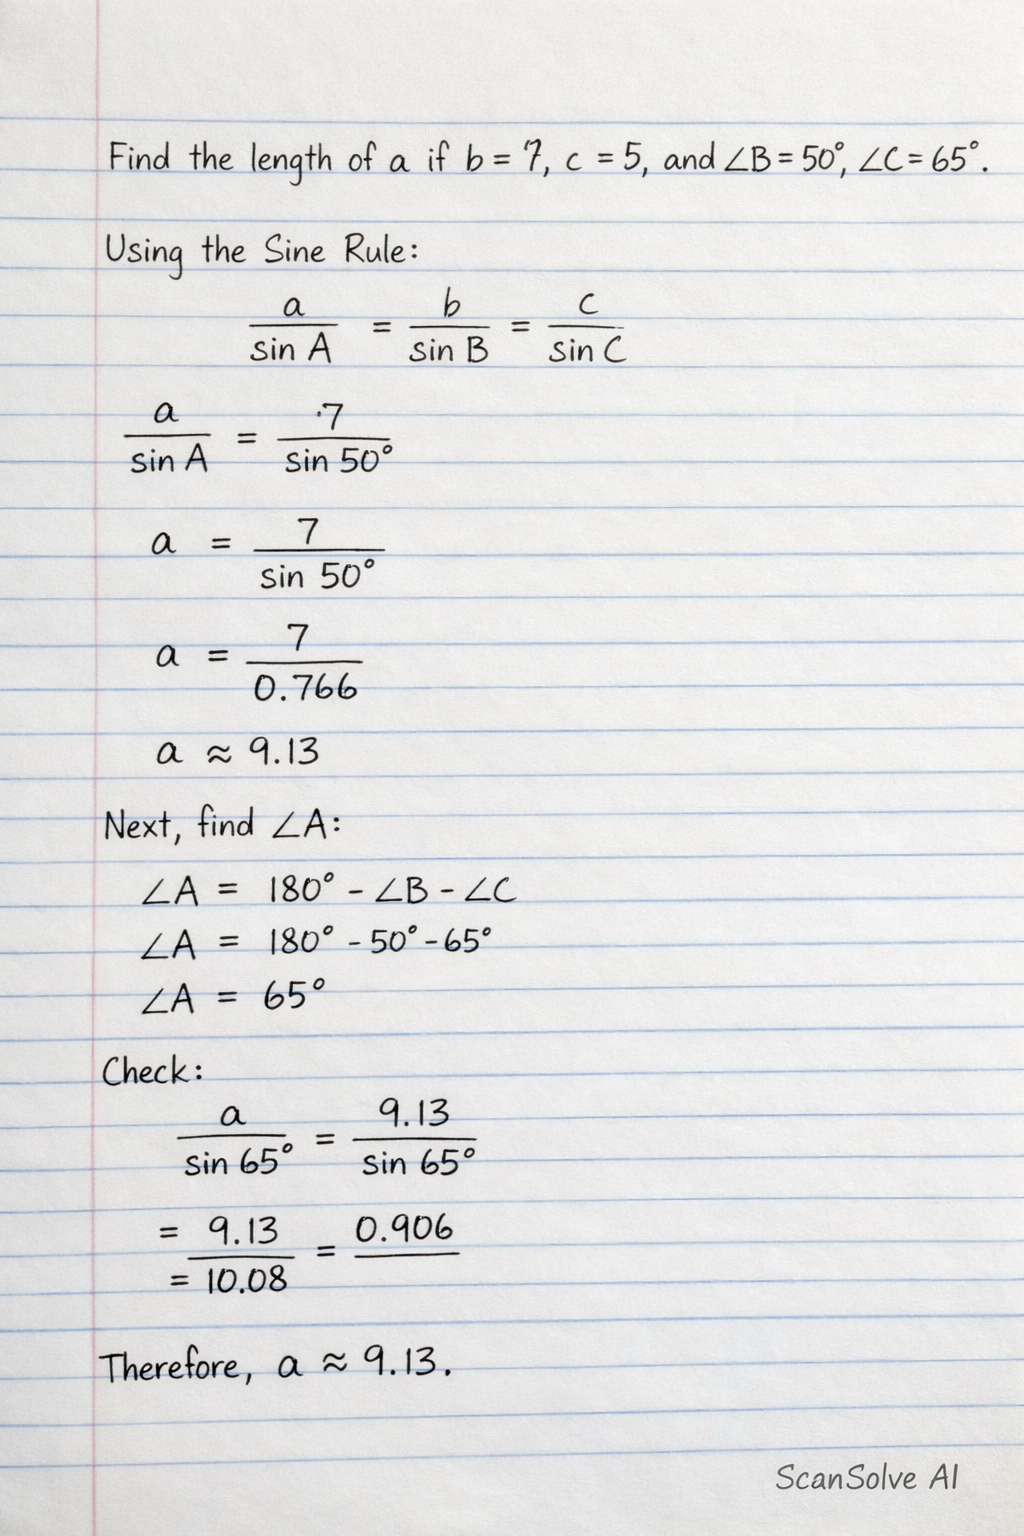 Find the length of a if b = 7, c = 5, and ∠B = 50°, ∠C = 65°.
Using the Sine Rule:
a/sin A = b/sin B = c/sin C
a/sin A = ·7/sin 50°
a = 7/sin 50°
a = 7/0.766
a ≈ 9.13
Next, find ∠A:
∠A = 180° - ∠B - ∠C
∠A = 180° - 50° - 65°
∠A = 65°
Check:
a/sin 65° = 9.13/sin 65°
= 9.13 = 0.906
= 10.08
Therefore, a ≈ 9.13.
ScanSolve AI